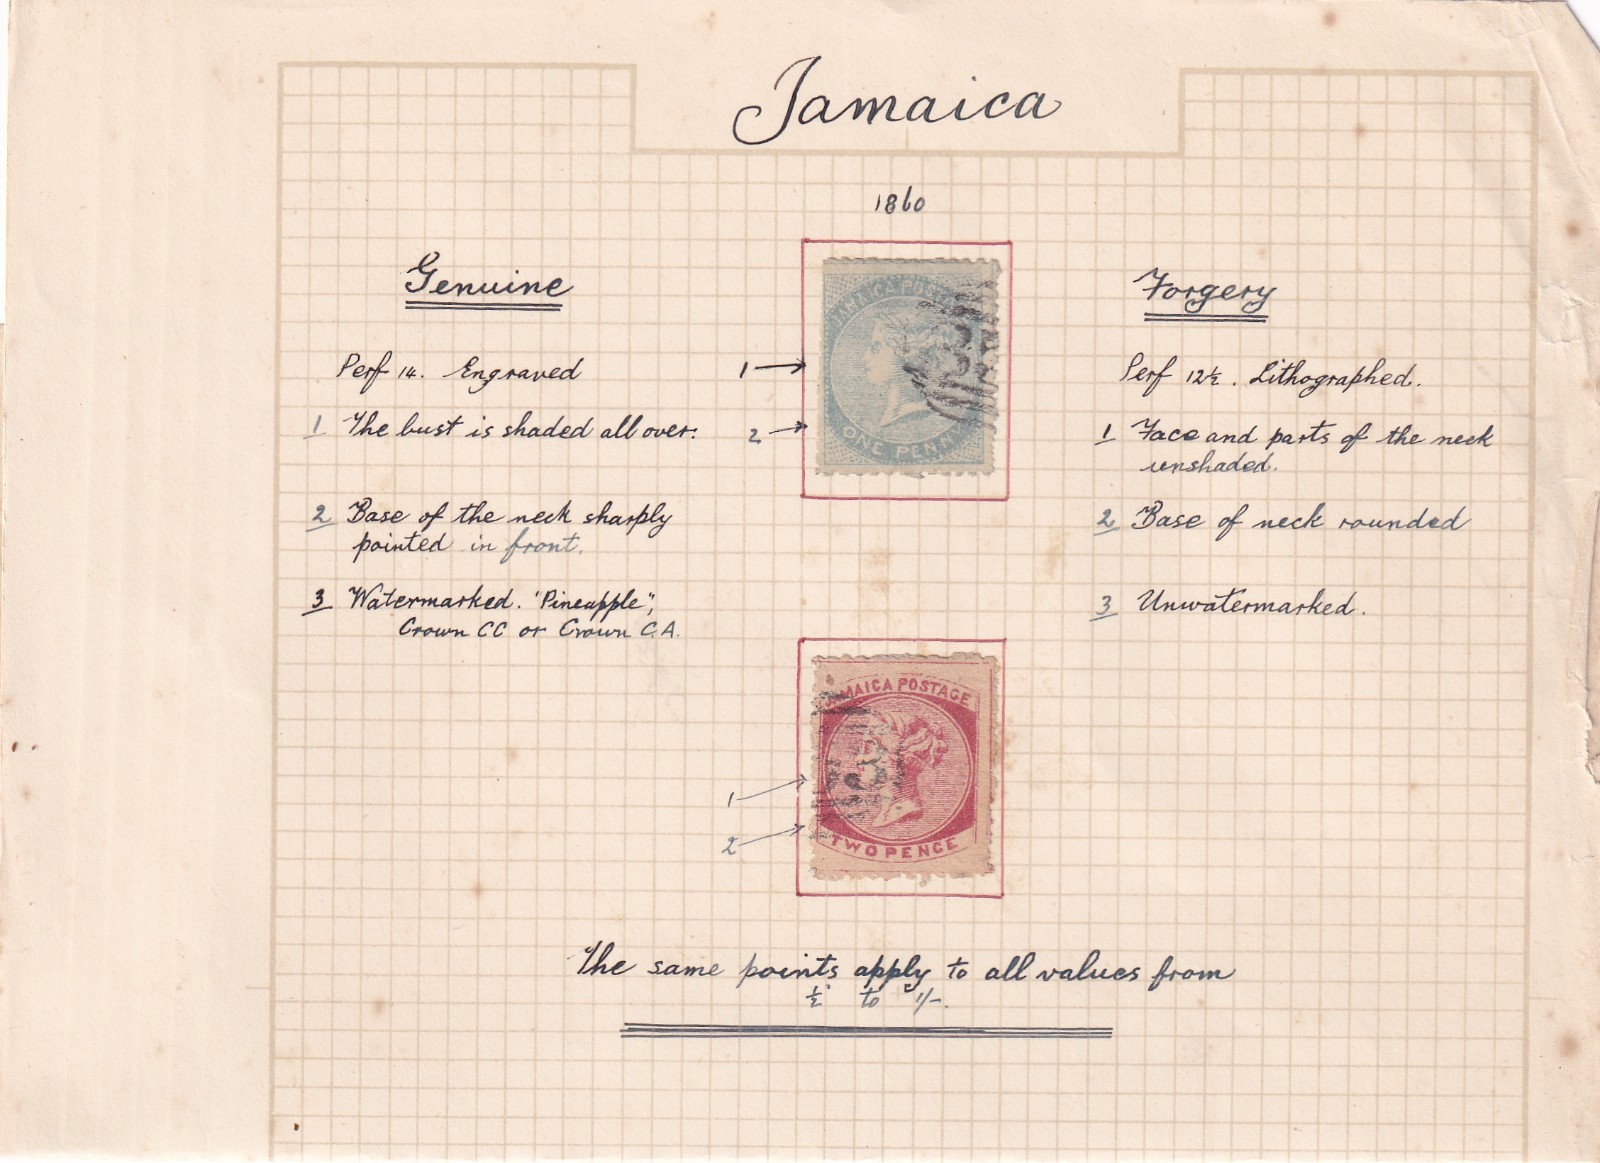 Jamaica
1860
Genuine
Perf 14. Engraved
1 The bust is shaded all over.
2 Base of the neck sharply
pointed in front.
3 Watermarked. "Pineapple",
Crown CC or Crown C.A.
1
2
JAMAICA POSTAGE
ONE PENNY
Forgery
Perf 12½. Lithographed.
1 Face and parts of the neck
unshaded.
2 Base of neck rounded
3 Unwatermarked.
1
2
JAMAICA POSTAGE
TWO PENCE
The same points apply to all values from
½ to 1/-.